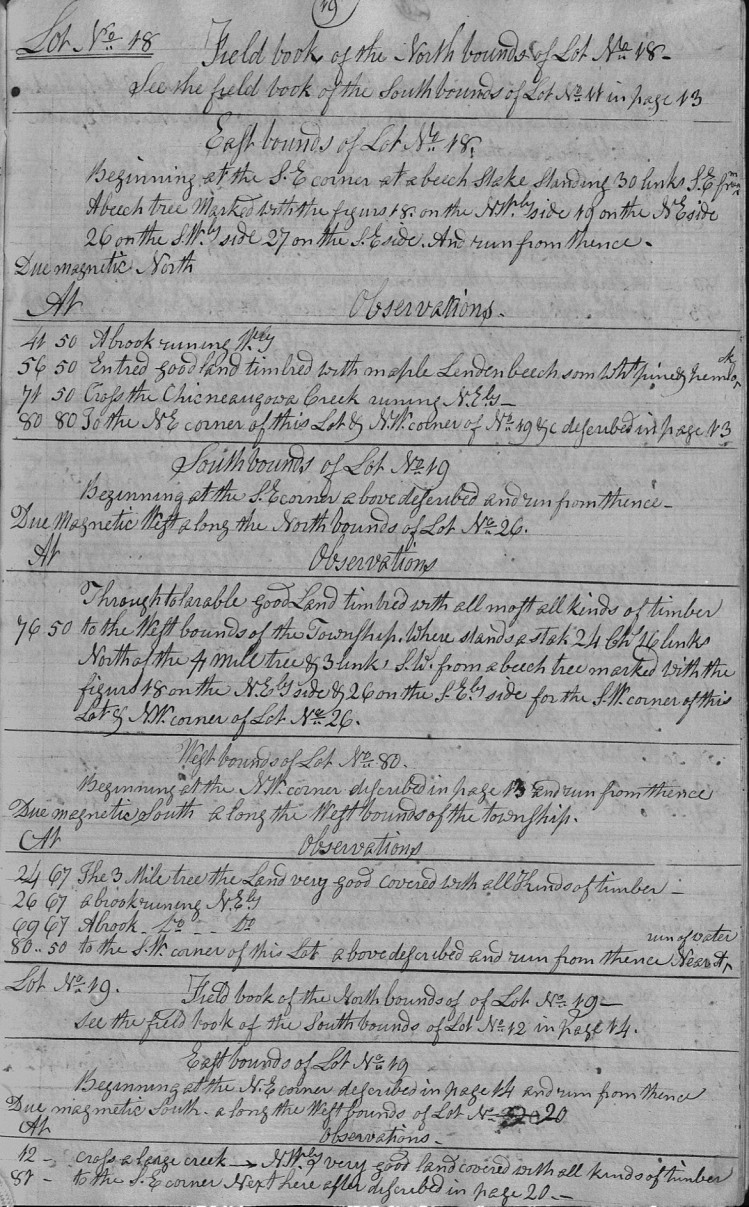 19
Lot No 18 Field book of the North bounds of Lot No 18-
See the field book of the South bounds of Lot No 11 in page 13
East bounds of Lot No 18.
Beginning at the S.E corner at a beech stake standing 30 links S.E from
A beech tree Marked with the figurs 18. on the N.Wly side 19 on the N.E side
26 on the S.Wly side 27 on the S.E side. And run from thence -
Due magnetic North
At Observations.
41 50 A brook runing Wly
56 50 Entred good land timbred with maple Lenden beech som Wht pine & hemlok
71 50 Cross the Chicneaugowa Creek runing N.Ely -
80 80 To the N.E corner of this Lot & N.W. corner of No 19 &c described in page 13
South bounds of Lot No 19
Beginning at the S.E corner above described and run from thence -
Due Magnetic West along the North bounds of Lot No 26.
At Observations
Through tolarable good Land timbred with all most all kinds of timber
76 50 to the West bounds of the Township. Where stands a stak 24 Chs 16 links
North of the 4 Mile tree & 3 links S.W. from a beech tree marked with the
figurs 18 on the N.Ely side & 26 on the S.Ely side for the S.W. corner of this
Lot & N.W. corner of Lot No 26.
West bounds of Lot No 80.
Beginning at the N.W. corner discribed in page 13 and run from thence
Due magnetic South along the West bounds of the township.
At Observations
24 67 The 3 Mile tree the Land very good covered with all Kinds of timber -
26 67 a brook runing N.Ely
69 67 A brook - Do - - Do
run of water
80 .. 50 to the S.W. corner of this Lot above described and run from thence Near A
Lot No 19. Field book of the North bounds of of Lot No 19 -
See the field book of the South bounds of Lot No 12 in page 14.
East bounds of Lot No 19
Beginning at the N.E corner described in page 14 and run from thence
Due magnetic South - along the West bounds of Lot No 20
At Observations -
12 - cross a large creek → N.Wly very good land covered with all kinds of timber
81 - to the S.E corner Next here after discribed in page 20. -